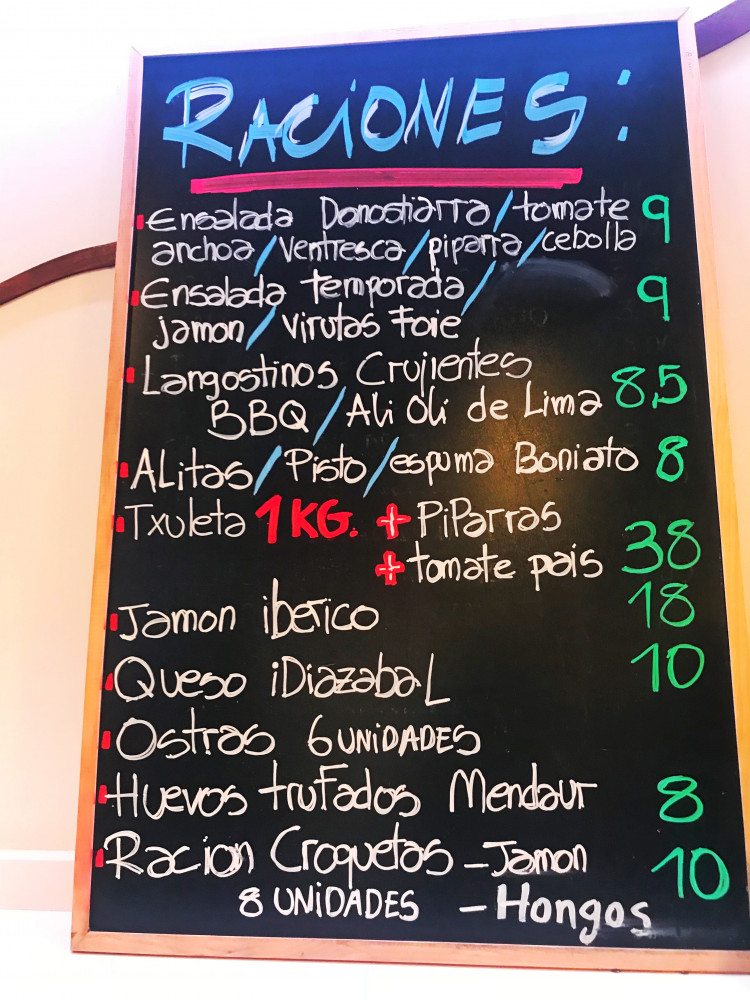 RACiONES:
Ensalada Donostiarra/tomate 9
anchoa/ventresca/piparra/cebolla
Ensalada temporada/ 9
jamon/virutas Foie
Langostinos Crujientes 8,5
BBQ/Ali Oli de Lima
ALitas/Pisto/espuma Boniato 8
Txuleta 1KG. + PiParras
+ tomate pais 38
Jamon iberico 18
Queso iDiazabaL 10
Ostras 6 UNiDADES
Huevos truFados Mendaur 8
Racion Croquetas - Jamon 10
8 UNiDADES - Hongos